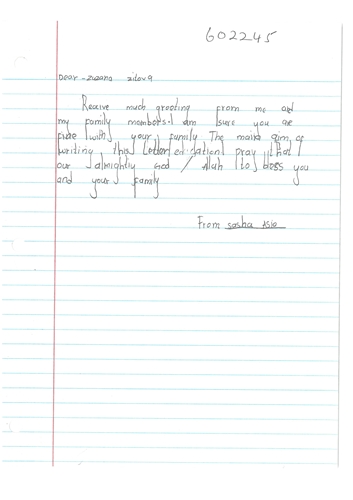 602245
Dear zuzana zilova
Receive much greeting from me and
my family members. I am sure you are
fine with your family The main aim of
writing this Letter pray that
our almightly God / Allah to bless you
and your family
From sasha Asio